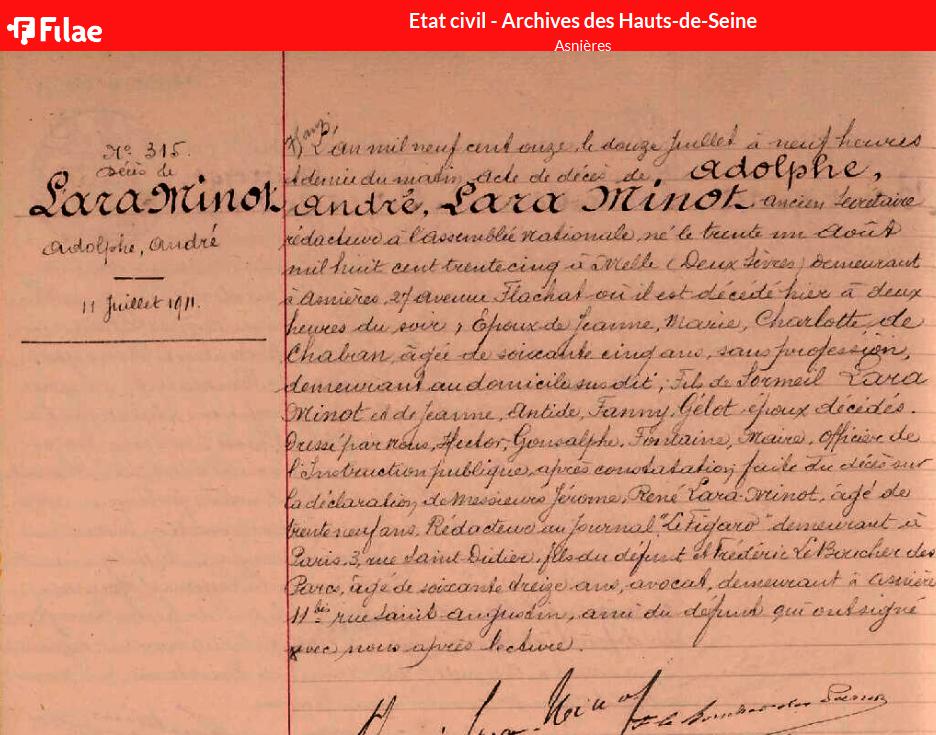 Filae
Etat civil - Archives des Hauts-de-Seine
Asnières
N° 315.
Décès de
Lara Minot
Adolphe, André
11 Juillet 1911.
L'an mil neuf cent onze, le douze Juillet à neuf heures
et demie du matin, acte de décès de, Adolphe,
André, Lara Minot ancien Secrétaire
rédacteur à l'assemblée Nationale, né le trente un Août
mil huit cent trente cinq à Melle (Deux Sèvres) demeurant
à Asnières, 27 avenue Flachat où il est décédé hier à deux
heures du soir, Epoux de Jeanne, Marie, Charlotte, de
Chaban, âgée de soixante cinq ans, sans profession,
demeurant au domicile susdit; Fils de Lara
Minot et de Jeanne, Antide, Fanny, Gélot époux décédés.
Dressé par nous, Hector, Gonsalphe, Fontaine, Maire, Officier de
l'Instruction publique, après constatation faite du décès sur
la déclaration de Messieurs Jérome, René Lara-Minot, âgé de
trente neuf ans, Rédacteur au Journal "Le Figaro" demeurant à
Paris, 3, rue Saint Didier, fils du défunt et Frédéric Le Boucher des
Parcs, âgé de soixante treize ans, avocat, demeurant à Asnières
11 bis rue Saint Augustin, ami du défunt qui ont signé
avec nous après lecture.